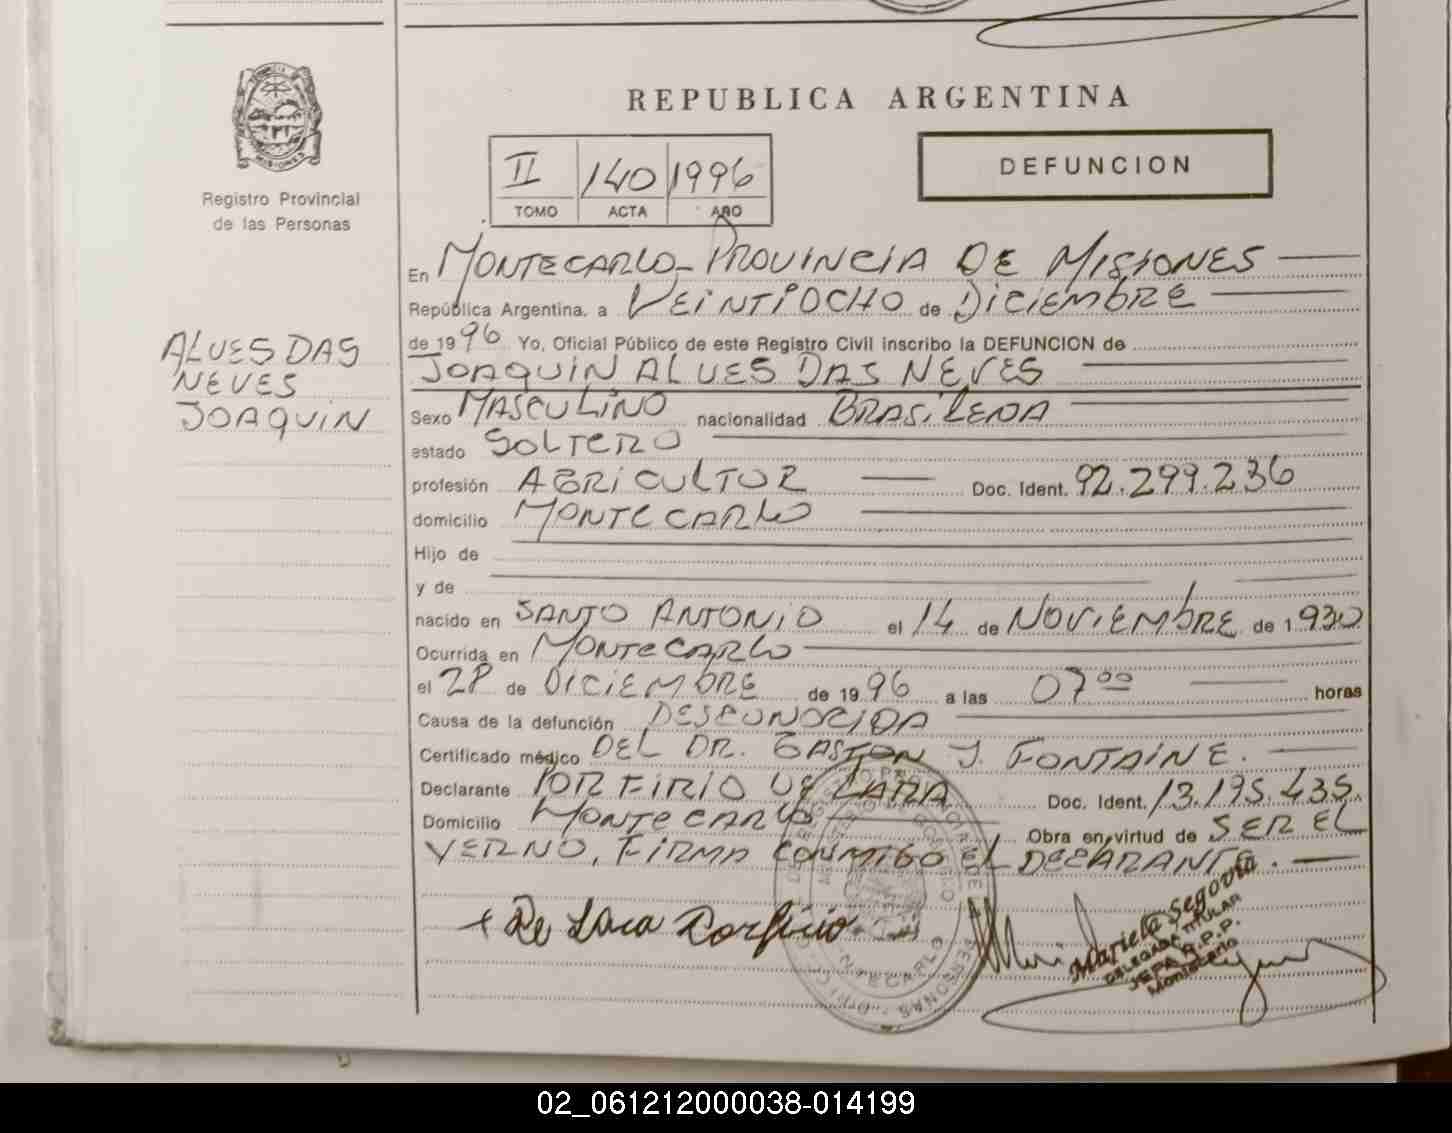 REPUBLICA ARGENTINA
II 140 1996
TOMO ACTA AÑO
DEFUNCION
Registro Provincial
de las Personas
ALVES DAS
NEVES
JOAQUIN
En MONTECARLO - PROVINCIA DE MISIONES
República Argentina, a VEINTIOCHO de DICIEMBRE
de 1996 Yo, Oficial Público de este Registro Civil inscribo la DEFUNCION de
JOAQUIN ALVES DAS NEVES
Sexo MASCULINO nacionalidad BRASILENA
estado SOLTERO
profesión AGRICULTOR Doc. Ident. 92.299.236
domicilio MONTECARLO
Hijo de
y de
nacido en SANTO ANTONIO el 14 de NOVIEMBRE de 1.930
Ocurrida en MONTECARLO
el 28 de DICIEMBRE de 1996 a las 07 00 horas
Causa de la defunción DESCONOCIDA
Certificado médico DEL DR. GASTON J. FONTAINE.
Declarante PORFIRIO DE LARA Doc. Ident. 13.195.435.
Domicilio MONTECARLO Obra en virtud de SER EL
YERNO, FIRMA CONMIGO EL DECLARANTE.
+ De Lara Porfirio
Mariela Segovia
DELEGADA TITULAR
JEFA R.P.P.
Montecarlo
02_061212000038-014199